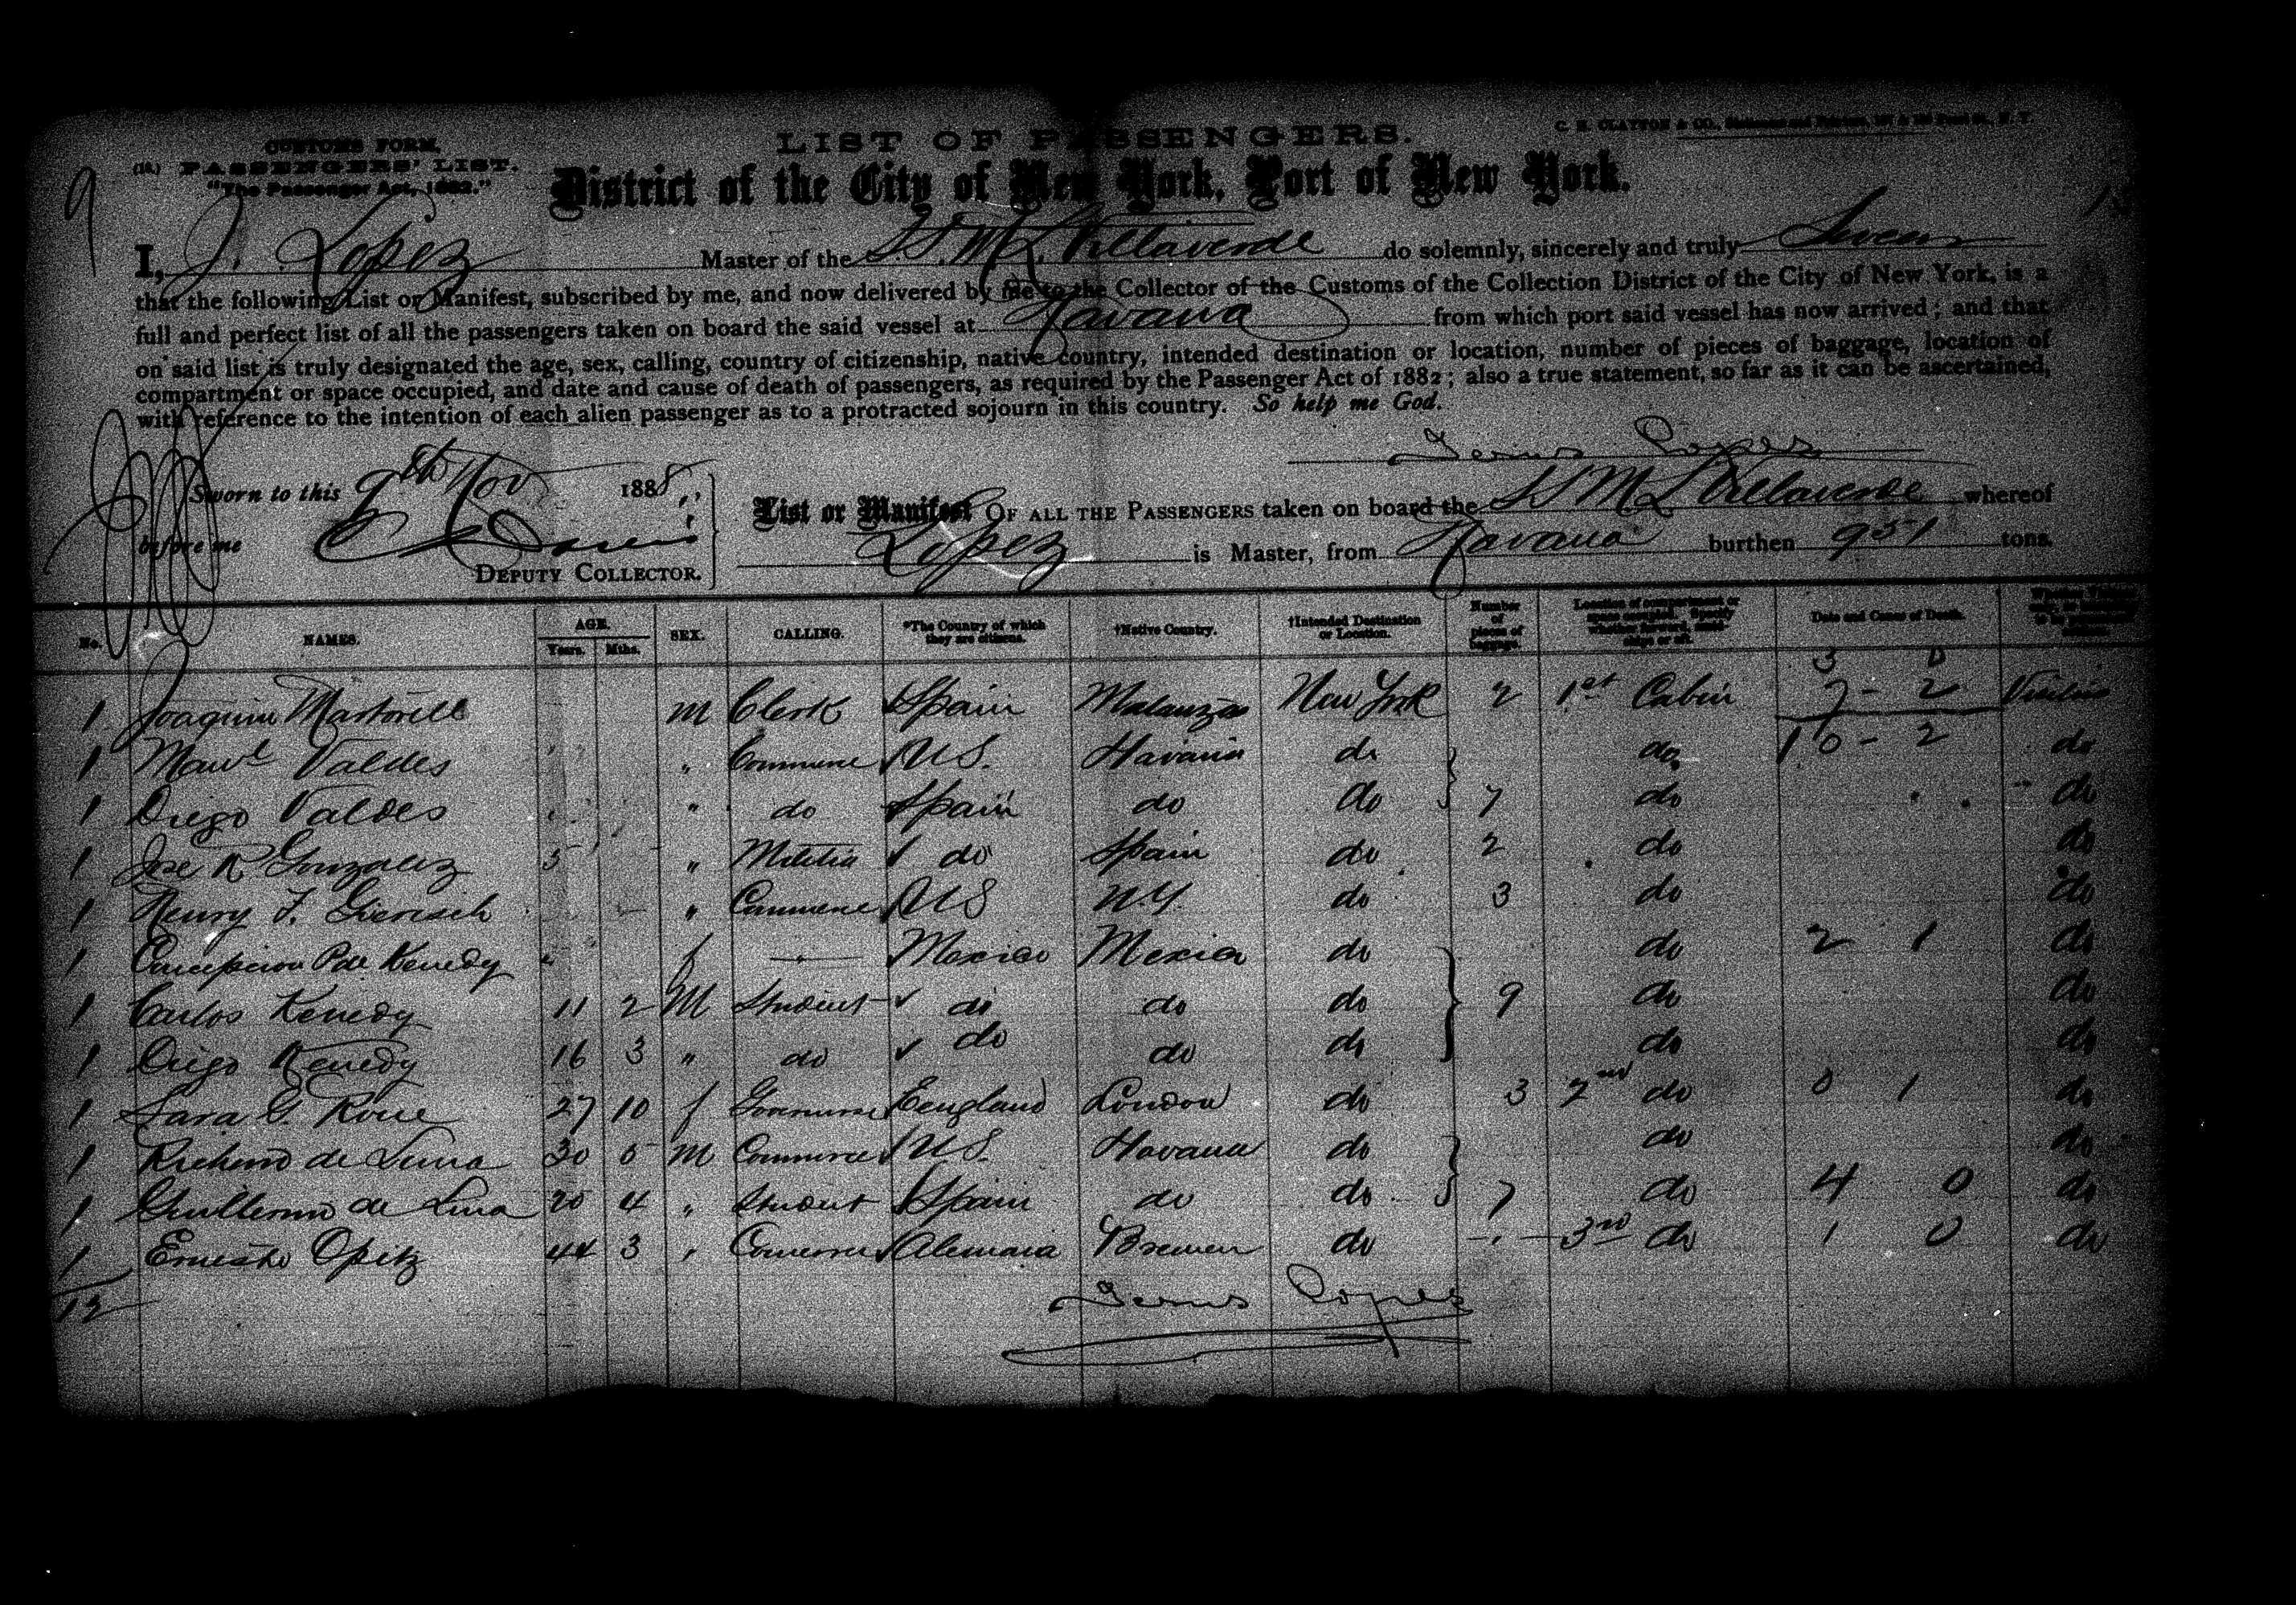 9
CUSTOMS FORM.
PASSENGERS' LIST.
"The Passenger Act, 1882."
LIST OF PASSENGERS.
District of the City of New York, Port of New York.
I, J. Lopez Master of the S.S. M. L. Villaverde do solemnly, sincerely and truly Swear
that the following List or Manifest, subscribed by me, and now delivered by me to the Collector of the Customs of the Collection District of the City of New York, is a
full and perfect list of all the passengers taken on board the said vessel at Havana from which port said vessel has now arrived; and that
on said list is truly designated the age, sex, calling, country of citizenship, native country, intended destination or location, number of pieces of baggage, location of
compartment or space occupied, and date and cause of death of passengers, as required by the Passenger Act of 1882; also a true statement, so far as it can be ascertained,
with reference to the intention of each alien passenger as to a protracted sojourn in this country. So help me God.
Jesus Lopez
Sworn to this 9th Nov 1888
before me
DEPUTY COLLECTOR.
List or Manifest OF ALL THE PASSENGERS taken on board the SS M L Villaverde whereof
Lopez is Master, from Havana burthen 951 tons.
No. NAMES. AGE. Years. Mths. SEX. CALLING. *The Country of which they are citizens. †Native Country. †Intended Destination or Location. Number of pieces of baggage. Date and Cause of Death.
3 0
1 Joaquin Martorell M Clerk Spain Matanzas New York 2 1st Cabin 7 - 2
1 Manl Valdes " Commerce U.S. Havana do do 10 - 2 do
1 Diego Valdes " do Spain do do 7 do do
1 Jose R Gonzalez " do Spain do 2 do do
1 Henry F. " Commerce US N.Y. do 3 do do
1 Concepcion P de Kenedy f — Mexico Mexico do do 2 1 do
1 Carlos Kenedy 11 2 M Student do do do 9 do do
1 Diego Kenedy 16 3 " do do do do do do
1 Sara G. 27 10 f England London do 3 2nd do 0 1 do
1 de Luna 30 5 M Commerce U.S. Havana do do do
1 Guillermo de Luna 20 4 " Student Spain do do 7 do 4 0 do
1 Ernesto Opitz 44 3 " Commerce Alemania Bremen do 3rd do 1 0 do
12
Jesus Lopez